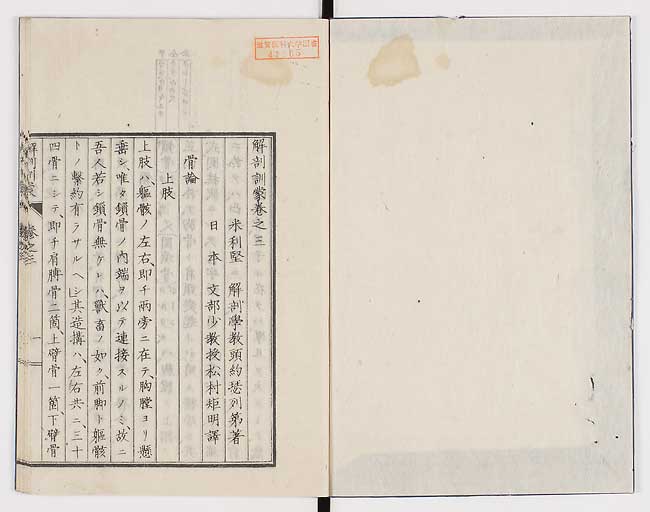 解剖訓蒙巻之三
米利堅 解剖學教頭約瑟列第著
日本 文部少教授松村矩明譯
骨論
上肢
上肢ハ軀骸ノ左右、即チ兩旁ニ在テ、胸膛ヨリ懸
垂シ、唯タ鎖骨ノ內端ヲ以テ連接スルノミ、故ニ
吾人若シ鎖骨無ケレハ、獸畜ノ如ク、前脚ト軀骸
トノ繫約有ラサルヘシ其造搆ハ、左右共ニ、三十
四骨ニシテ、即チ肩胛骨二箇、上臂骨一箇、下臂骨
解剖訓蒙
巻之三